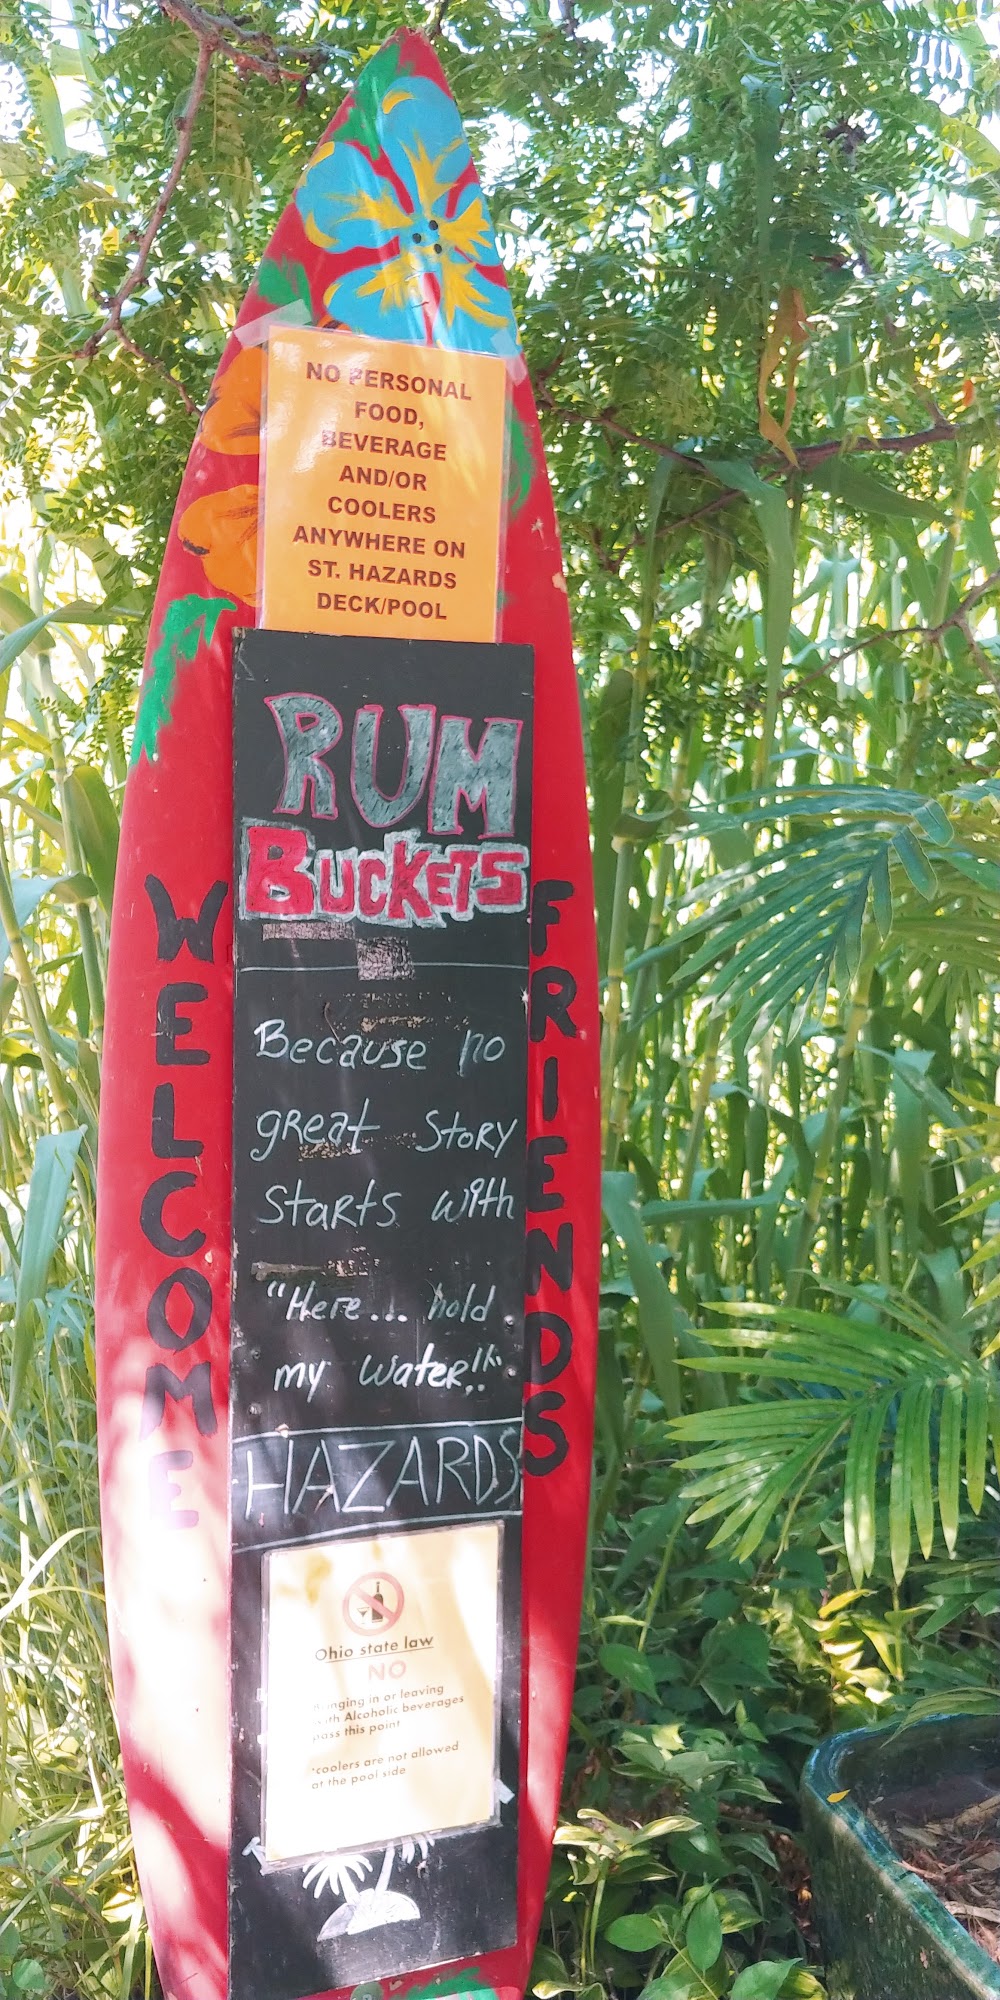 NO PERSONAL
FOOD,
BEVERAGE
AND/OR
COOLERS
ANYWHERE ON
ST. HAZARDS
DECK/POOL
RUM
BUCKETS
WELCOME
FRIENDS
Because no
great Story
Starts with
"Here... hold
my water!!"
HAZARDS
Ohio state law
NO
Bringing in or leaving
with Alcoholic beverages
pass this point
*coolers are not allowed
at the pool side